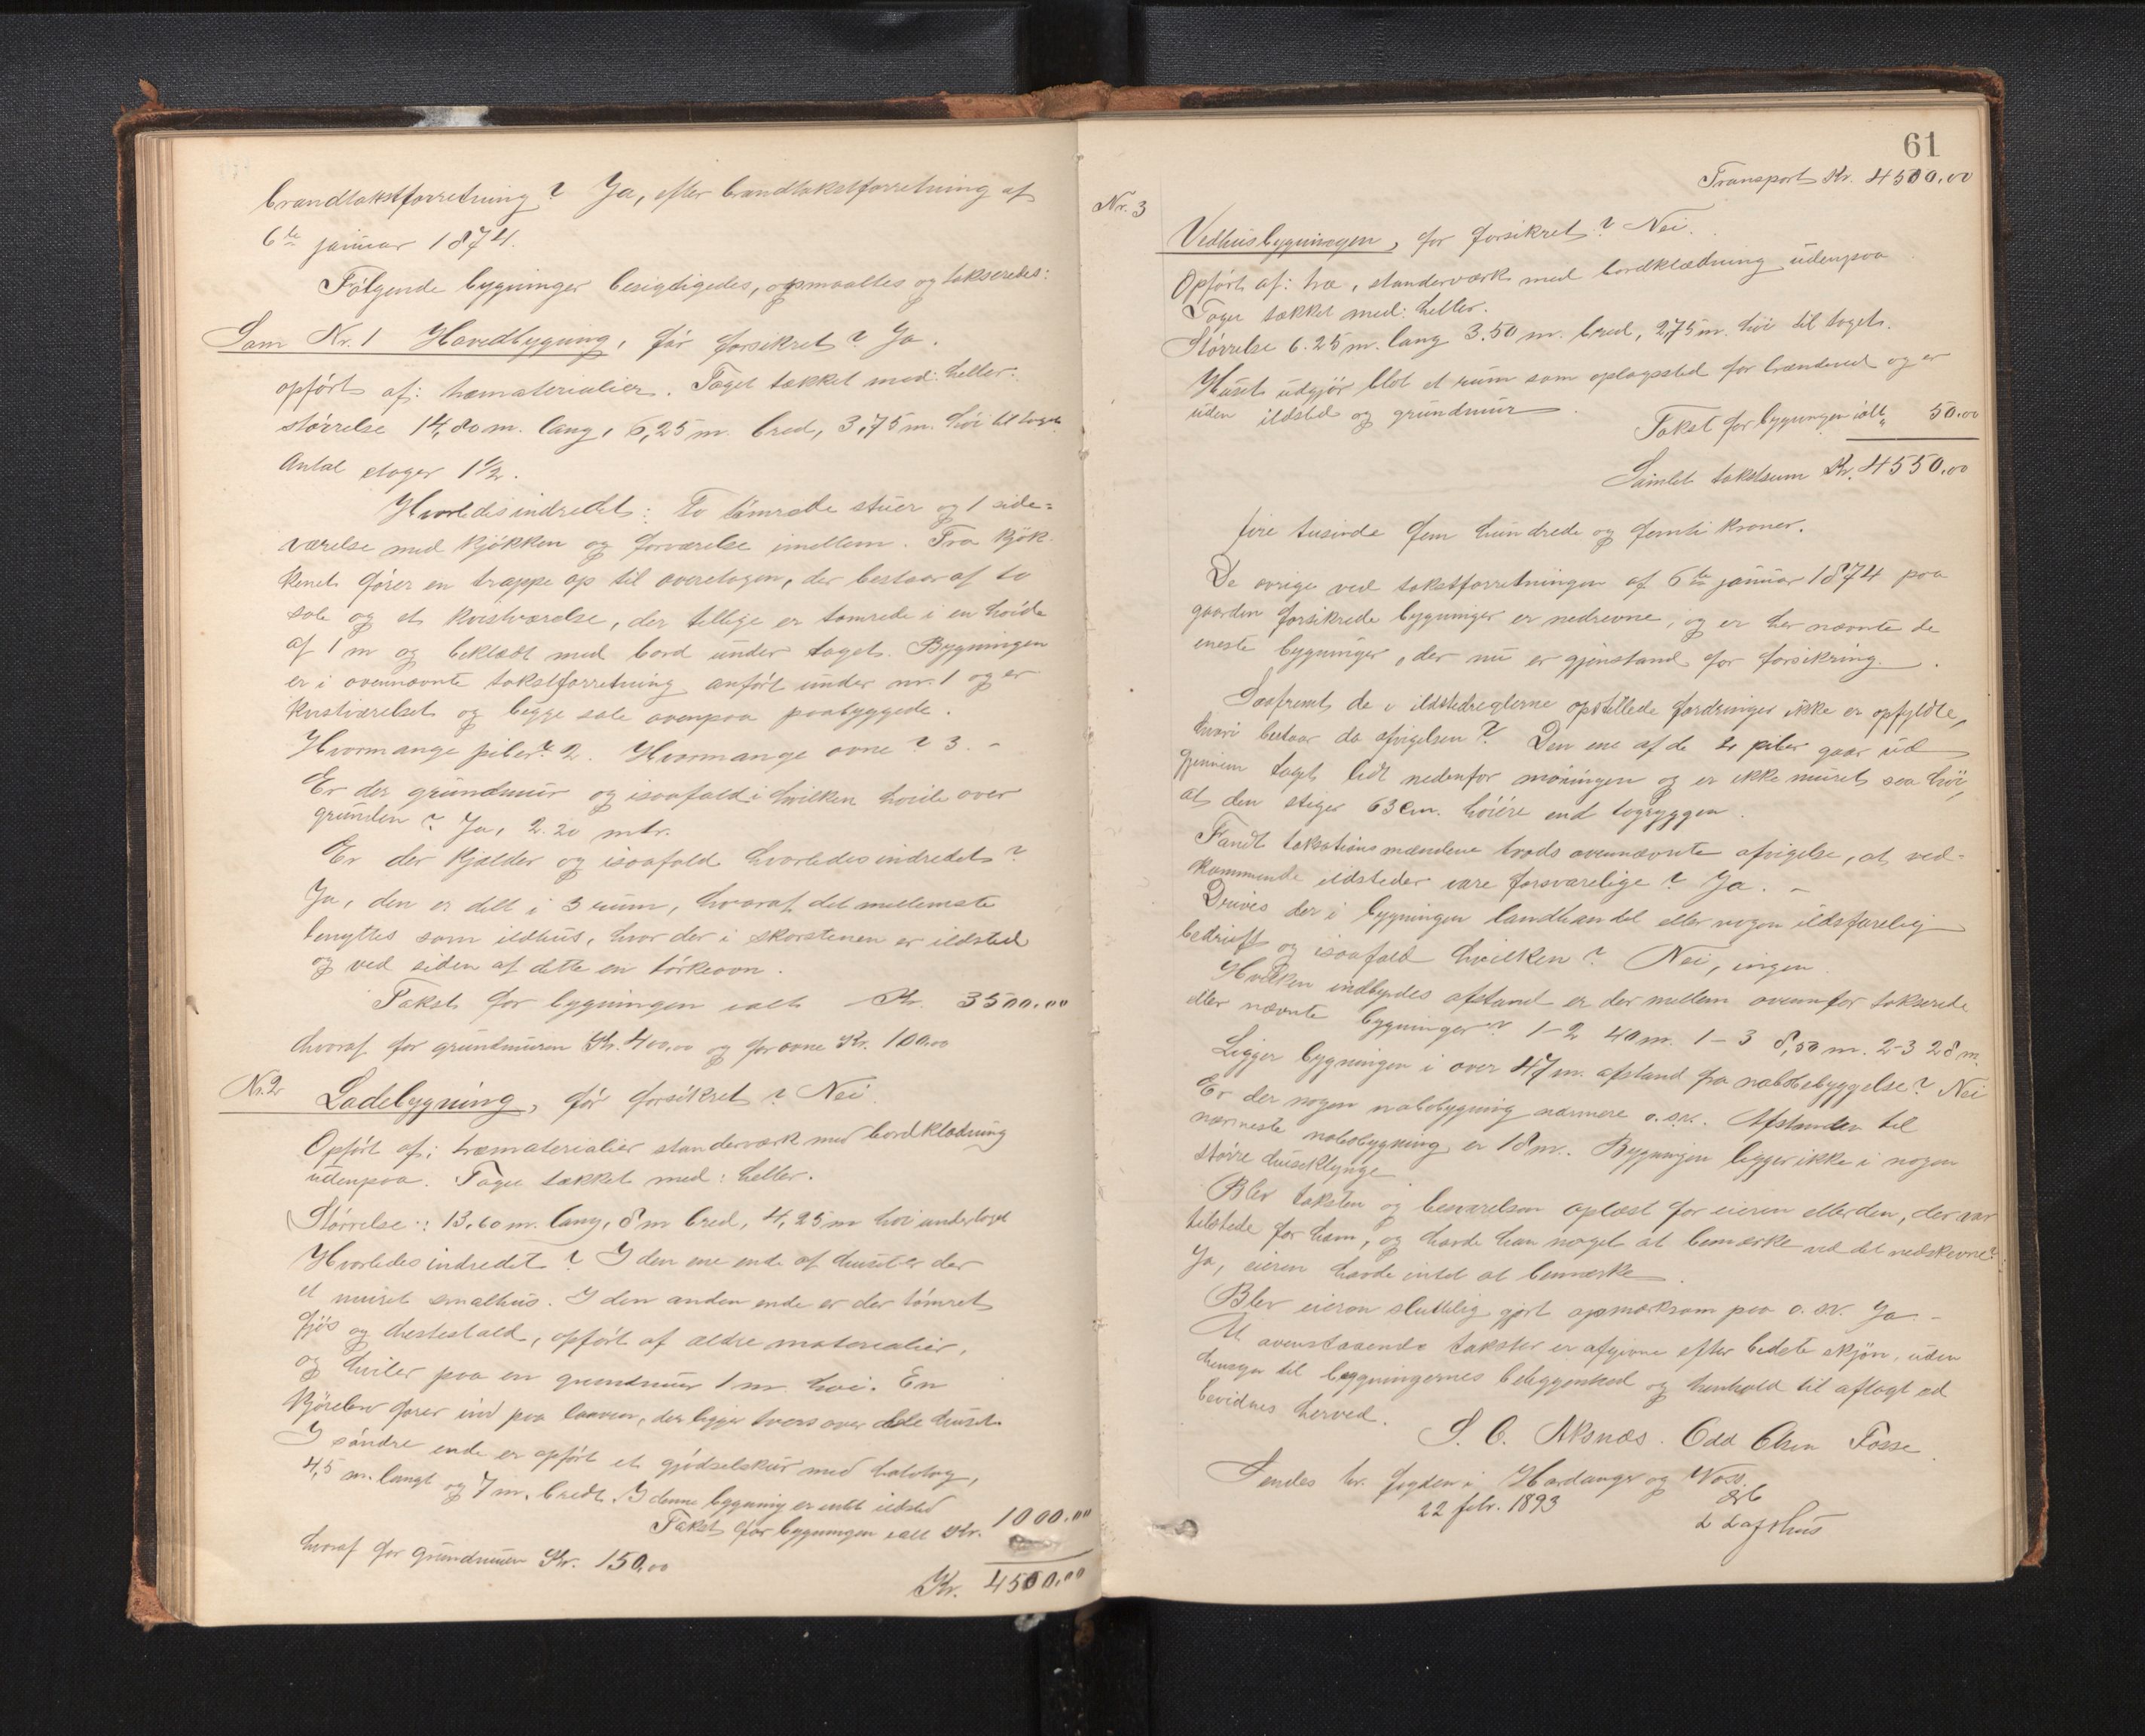 brandtakstforretning? Ja, efter brandtakstforretning af
6te januar 1874.
Følgende bygninger besigtigedes, opmaaltes og takseredes:
Som Nr. 1 Hovedbygning, før forsikret? Ja.
opført af: træmaterialier. Taget tækket med: heller.
størrelse 14,80 m. lang, 6,25 m. bred, 3,75 m. høi til taget
Antal etager 1 1/2.
Hvorledes indredet: To tømrede stuer og 1 side-
værelse med kjøkken og forværelse imellem. Fra kjøk-
kenet fører en trappe op til overetagen, der bestaar af to
sale og et kvistværelse, der tillige er tømrede i en høide
af 1 m og beklædt med bord under taget. Bygningen
er i ovennævnte takstforretning anført under nr. 1 og er
kvistværelset og begge sale ovenpaa paabyggede.
Hvormange piber? 2. Hvormange ovne? 3. –
Er der grundmur og isaafald i hvilken høide over
grunden? Ja, 2.20 mtr.
Er der kjælder og isaafald hvorledes indredet?
Ja, den er delt i 3 rum, hvoraf det mellemste
benyttes som ildhus, hvor der i skorstenen er ildsted
og ved siden af dette en tørkeovn.
Takst for bygningen ialt – Kr. 3500.00
hvoraf for grundmuren Kr. 400,00 og for ovne Kr. 100.00
Nr. 2 Ladebygning, før forsikret? Nei.
Opført af: træmaterialier standerværk med bordklædning
udenpaa. Taget tækket med: heller.
Størrelse: 13,60 m. lang, 8 m bred, 4,25 m høi under taget
Hvorledes indredet? I den ene ende af huset er der
et muret smalhus. I den anden ende er der tømret
fjøs og hestestald, opført af ældre materialier,
og hviler paa en grundmur 1 m. høi. En
kjørebro fører ind paa laaven, der ligger tvers over hele huset.
I søndre ende er opført et gjødselskur med halvtag,
4,5 m. langt og 7 m. bredt. I denne bygning er intet ildsted
Takst for bygningen ialt Kr. 1000.00
hvoraf for grundmuren Kr. 150,00
Kr. 4500.00
61
Transport Kr. 4500.00
Nr. 3
Vedhusbygningen, før forsikret? Nei.
Opført af: træ, standerværk med bordklædning udenpaa
Taget tækket med: heller.
Størrelse 6.25 m. lang 3.50 m. bred, 2,75 m. høi til taget.
Huset udgjør blot et rum som oplagssted for brændeved og er
uden ildsted og grundmur.
Takst for bygningen ialt „ 50.00
Samlet takstsum Kr. 4550.00
fire tusinde fem hundrede og femti kroner.
De øvrige ved takstforretningen af 6te januar 1874 paa
gaarden forsikrede bygninger er nedrevne, og er her nævnte de
eneste bygninger, der nu er gjenstand for forsikring.
Saafremt de i ildstedreglerne opstillede fordringer ikke er opfyldte,
hvori bestaar da afvigelsen? Den ene af de 2 piber gaar ud
gjennem taget lidt nedenfor møningen og er ikke muret saa høi,
at den stiger 63 cm. høiere end tagryggen.
Fandt taksationsmændene trods ovennævnte afvigelse, at ved-
kommende ildsteder vare forsvarelige? Ja. –
Drives der i bygningen landhandel eller nogen ildsfarelig
bedrift og isaafald hvilken? Nei, ingen.
Hvilken indbyrdes afstand er der mellem ovenfor takserede
eller nævnte bygninger? 1–2 40 m. 1–3 8,50 m. 2–3 28 m.
Ligger bygningen i over 47 m. afstand fra nabobebyggelse? Nei
Er der nogen nabobygning nærmere o.s.v. Afstanden til
nærmeste nabobygning er 18 m. Bygningen ligger ikke i nogen
større huseklynge
Blev taksten og besvarelsen oplæst for eieren eller den, der var
tilstede for ham, og havde han noget at bemærke ved det nedskrevne?
Ja, eieren havde intet at bemærke.
Blev eieren sluttelig gjort opmærksom paa o.s.v. Ja –
At ovenstaaende takster er afgivne efter bedste skjøn, uden
hensyn til bygningernes beliggenhed og henhold til aflagt ed
bevidnes herved.
S. O. Aksnæs. Odd Olsen Fosse.
Sendes hr. fogden i Hardanger og Voss.
22 febr. 1893
L Lofthus